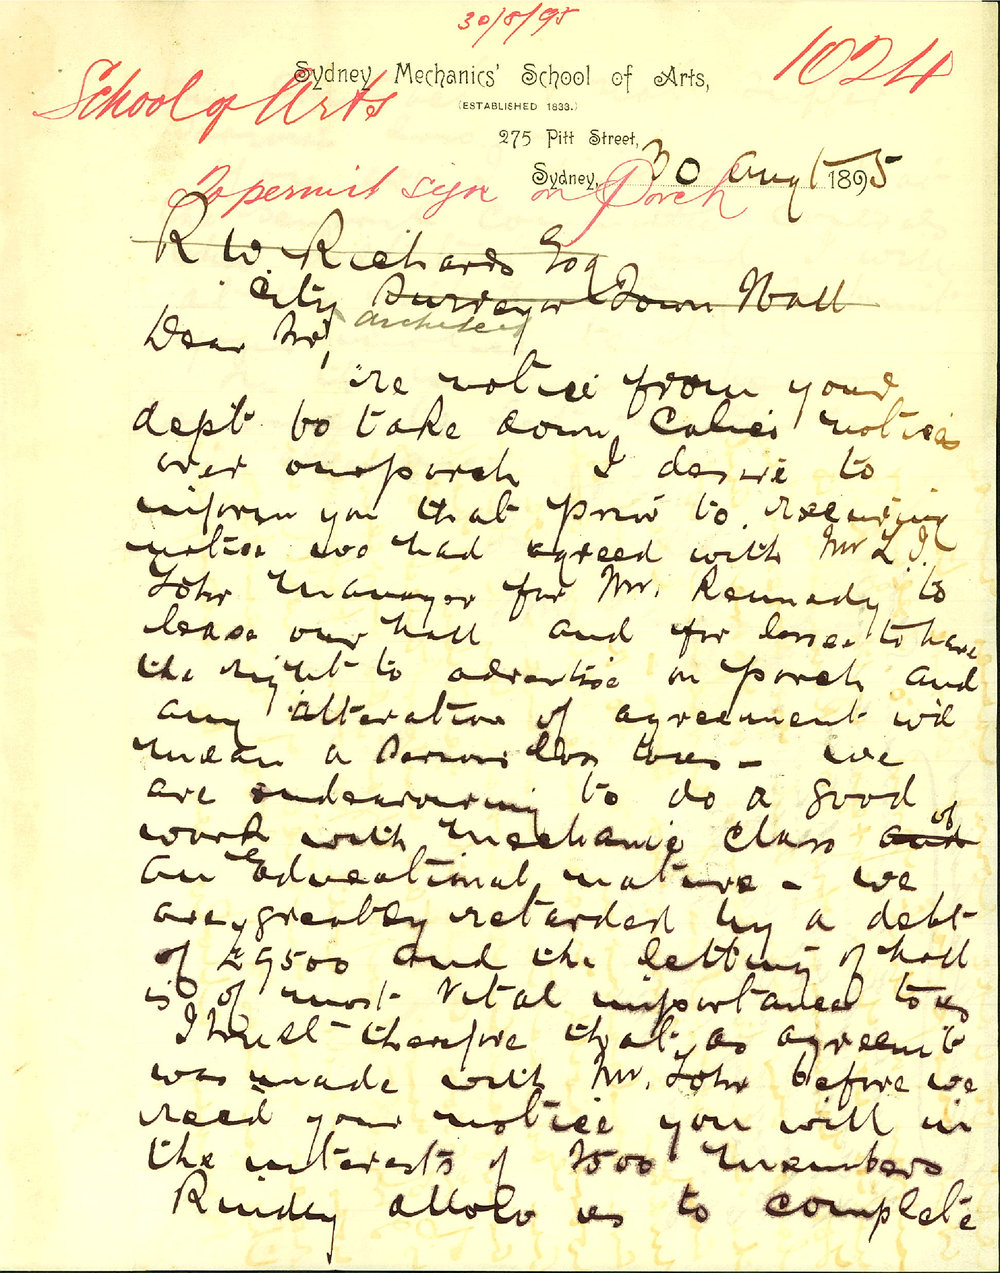 30/8/95
1024
School of Arts
Sydney Mechanics' School of Arts,
(ESTABLISHED 1833.)
275 Pitt Street,
Sydney, 30 Augt 1895
To permit sign on Porch
R W. Richards Esq
City Surveyor Town Hall
architect
Dear Sir,
re notice from your
dept to take down Calico notices
over our porch I desire to
inform you that prior to receiving
notice we had agreed with Mr L. J.
Lohr Manager for Mr. Kennedy to
lease our hall and for lessee to have
the right to advertise on porch and
any alteration of agreement will
mean a serious loss to us - we
are endeavouring to do a good
work with mechanic class and of
an Educational nature - we
are greatly retarded by a debt
of £9500 and the letting of hall
is of most vital importance to us
I trust therefore that as agreemt
was made with Mr. Lohr before we
recd your notice you will in
the interests of 2500 members
Kindly allow us to complete